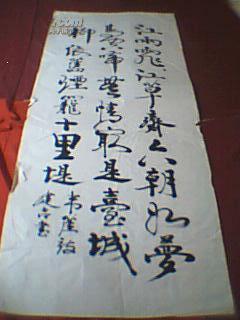 江雨霏霏江草齊六朝如夢
鳥空啼無情最是臺城
柳依舊煙籠十里堤韋莊詩
建書
.com